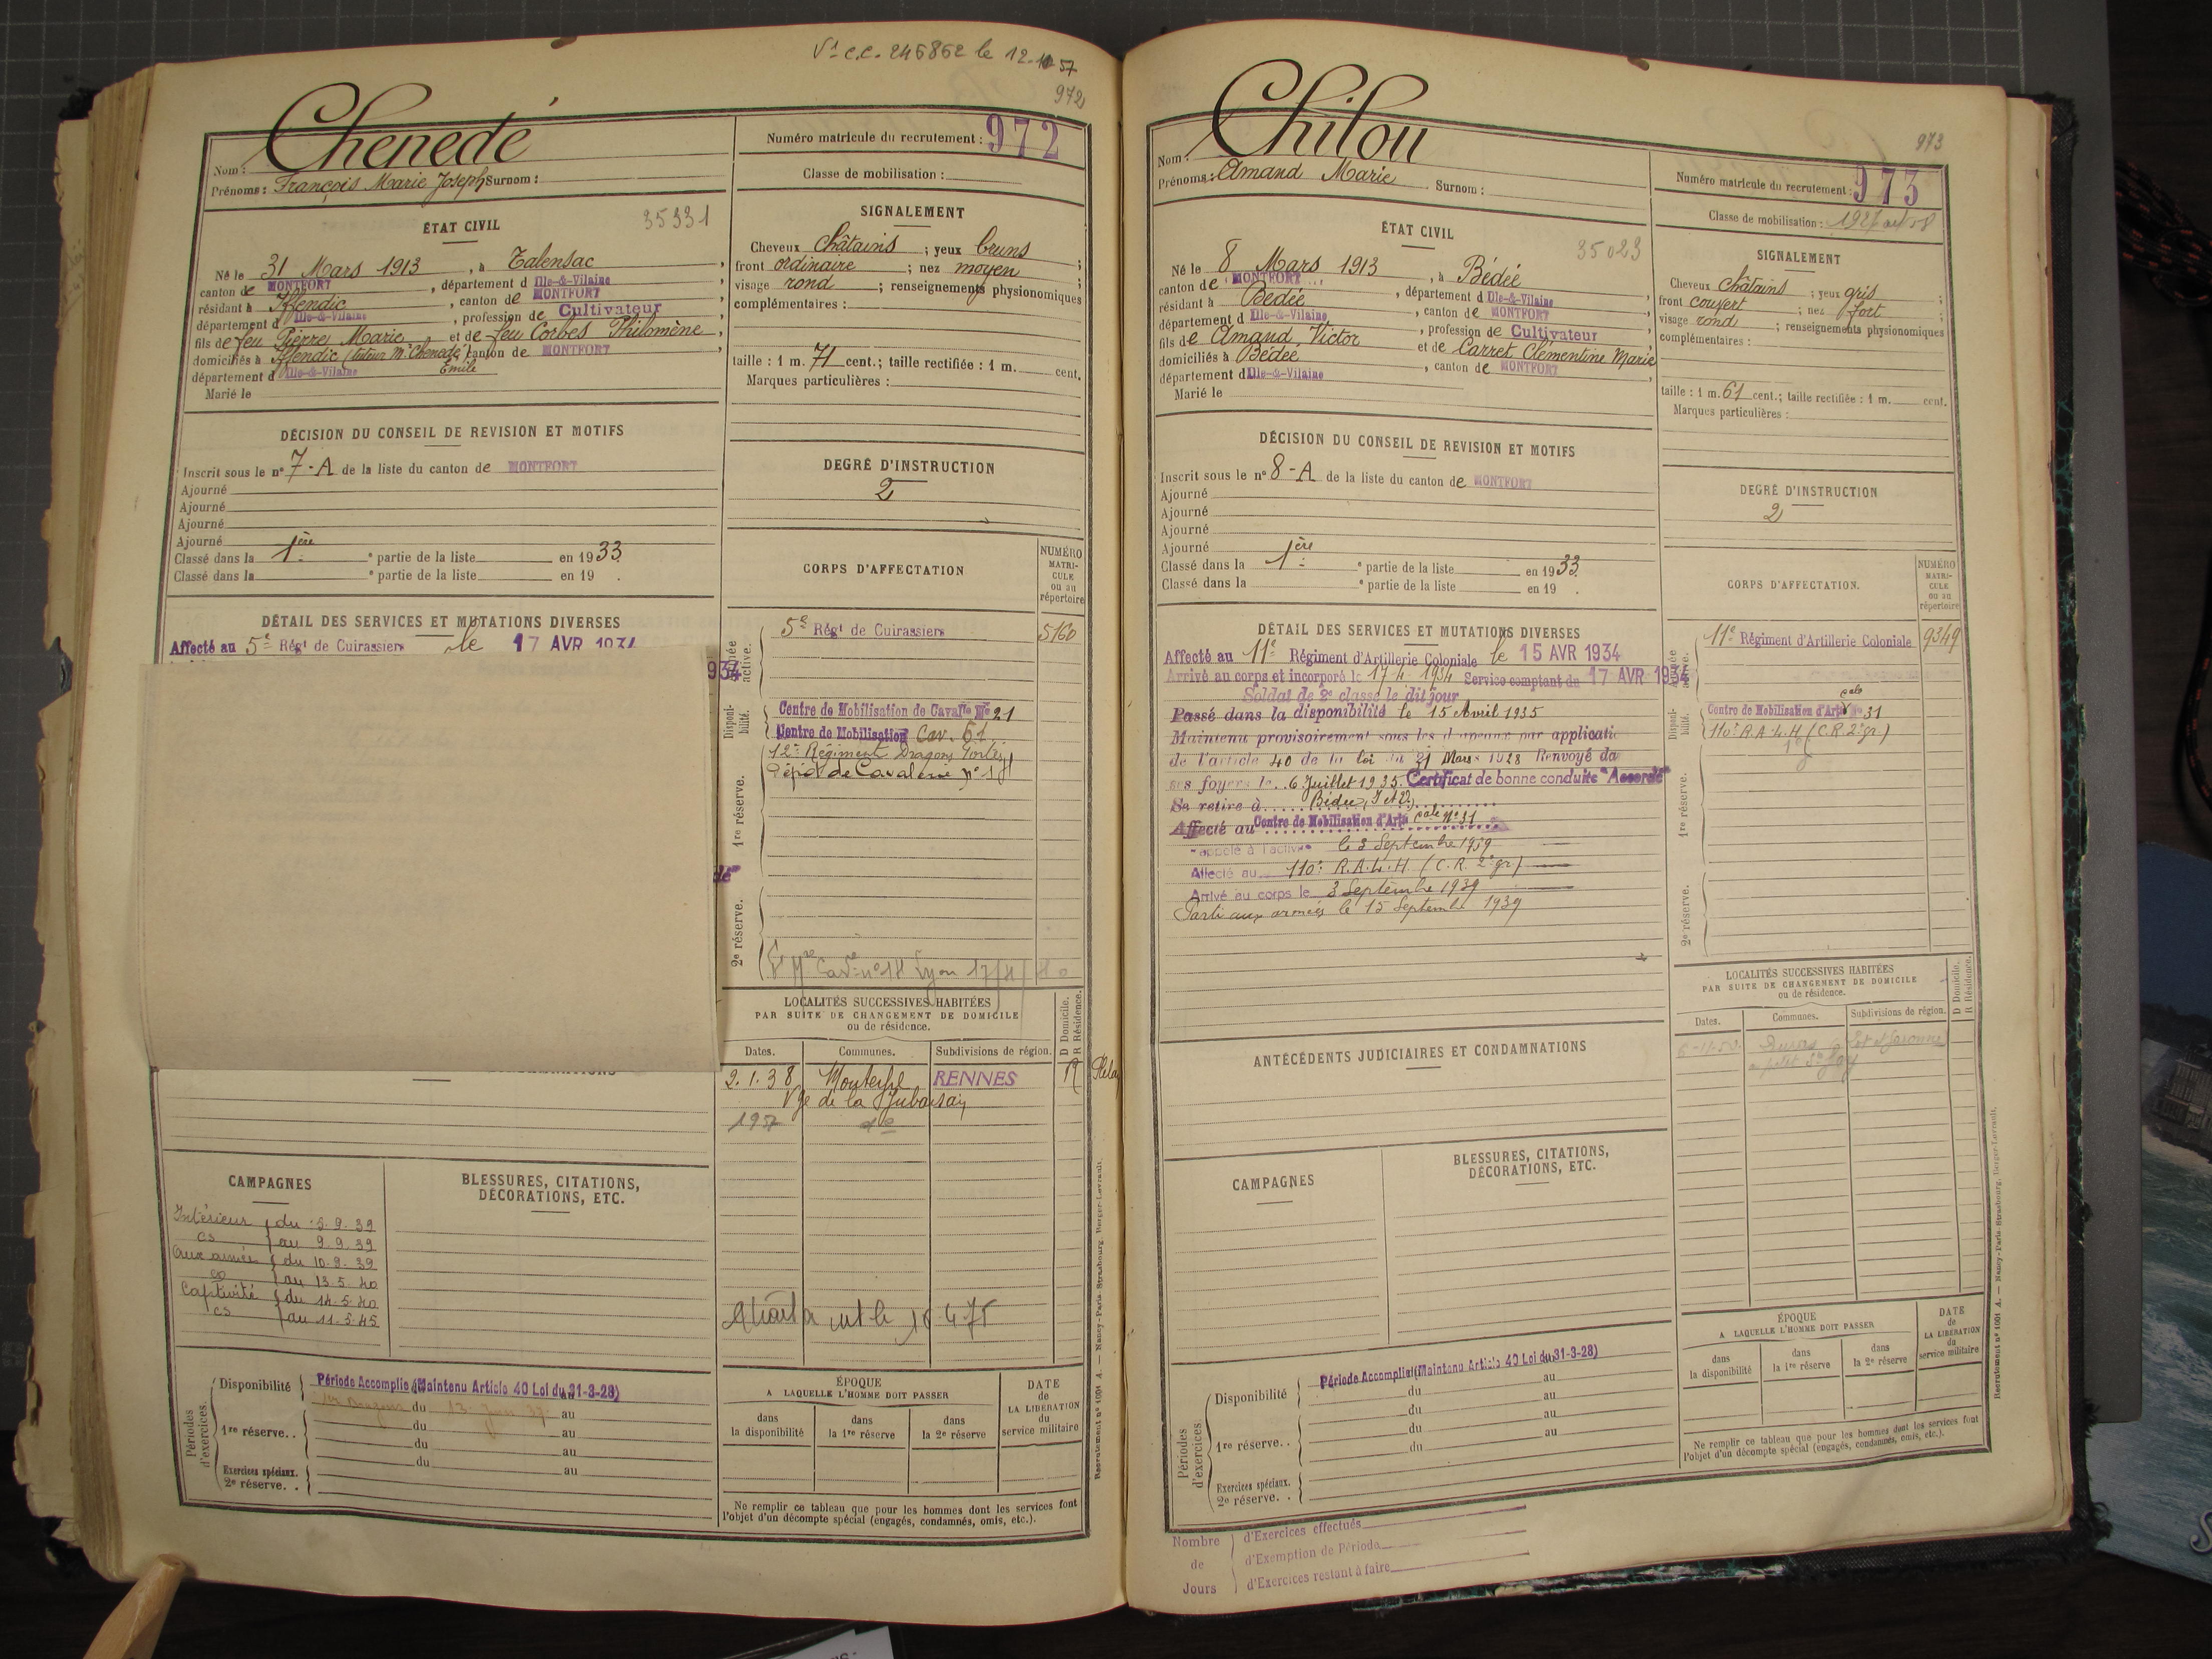 Vt c.c. 246862 le 12-11-57
972
Chenedé
Nom :
Prénoms : François Marie Joseph Surnom :
Numéro matricule du recrutement : 972
Classe de mobilisation :
ÉTAT CIVIL
35331
Né le 31 Mars 1913, à Talensac,
canton de MONTFORT, département d Ille-&-Vilaine
résidant à Iffendic, canton de MONTFORT
département d Ille-&-Vilaine, profession de Cultivateur
fils de feu Pierre Marie et de feu Corbes Philomène,
domiciliés à Iffendic (tuteur Mr Chenedé Emile) canton de MONTFORT,
département d Ille-&-Vilaine
Marié le
SIGNALEMENT
Cheveux châtains ; yeux bruns ;
front ordinaire ; nez moyen ;
visage rond ; renseignements physionomiques
complémentaires :
taille : 1 m. 71 cent.; taille rectifiée : 1 m. cent.
Marques particulières :
DÉCISION DU CONSEIL DE REVISION ET MOTIFS
Inscrit sous le n° 7-A de la liste du canton de MONTFORT
Ajourné
Ajourné
Ajourné
Ajourné
Classé dans la 1ère e partie de la liste en 1933.
Classé dans la e partie de la liste en 19 .
DEGRÉ D'INSTRUCTION
2
CORPS D'AFFECTATION
NUMÉRO
MATRI-
CULE
ou au
répertoire
DÉTAIL DES SERVICES ET MUTATIONS DIVERSES
Affecté au 5e Régt de Cuirassiers le 17 AVR 1934
934
Armée active.
5e Régt de Cuirassiers 5160
Disponi-
bilité.
Centre de Mobilisation de Cavalie N° 21
Centre de Mobilisation Cav. 61
12e Régiment Dragons Portés
Dépôt de Cavalerie n° 18
1re réserve.
2e réserve.
Cavie n° 18 Lyon 17/4/40
LOCALITÉS SUCCESSIVES HABITÉES
PAR SUITE DE CHANGEMENT DE DOMICILE
ou de résidence.
D Domicile.
R Résidence.
Dates. Communes. Subdivisions de région.
2.1.38 RENNES R
Vge de la
1957 do
CAMPAGNES
BLESSURES, CITATIONS,
DÉCORATIONS, ETC.
Intérieur du 5.9.39
CS au 9.9.39
Aux armées du 10.9.39
CD au 13.5.40
Captivité du 14.5.40
CS au 11.5.45
Périodes
d'exercices.
Disponibilité Période Accomplie (Maintenu Article 40 Loi du 31-3-28)
du 13 Juin 37 au
1re réserve.. du au
du au
du au
Exercices spéciaux.
2e réserve. .
ÉPOQUE
A LAQUELLE L'HOMME DOIT PASSER
dans
la disponibilité
dans
la 1re réserve
dans
la 2e réserve
DATE
de
LA LIBÉRATION
du
service militaire
Ne remplir ce tableau que pour les hommes dont les services font
l'objet d'un décompte spécial (engagés, condamnés, omis, etc.).
Recrutement n° 1001 A. — Nancy-Paris-Strasbourg, Berger-Levrault.
973
Chilou
Nom :
Prénoms : Amand Marie Surnom :
Numéro matricule du recrutement : 973
Classe de mobilisation : 1927
ÉTAT CIVIL
35023
Né le 8 Mars 1913, à Bédée,
canton de MONTFORT, département d Ille-&-Vilaine
résidant à Bédée, canton de MONTFORT
département d Ille-&-Vilaine, profession de Cultivateur
fils de Amand, Victor et de Carret Clémentine Marie
domiciliés à Bédée, canton de MONTFORT
département d Ille-&-Vilaine
Marié le
SIGNALEMENT
Cheveux châtains ; yeux gris ;
front couvert ; nez fort ;
visage rond ; renseignements physionomiques
complémentaires :
taille : 1 m. 61 cent.; taille rectifiée : 1 m. cent.
Marques particulières :
DÉCISION DU CONSEIL DE REVISION ET MOTIFS
Inscrit sous le n° 8-A de la liste du canton de MONTFORT
Ajourné
Ajourné
Ajourné
Ajourné
Classé dans la 1ère e partie de la liste en 1933.
Classé dans la e partie de la liste en 19 .
DEGRÉ D'INSTRUCTION
2
CORPS D'AFFECTATION.
NUMÉRO
MATRI-
CULE
ou au
répertoire
DÉTAIL DES SERVICES ET MUTATIONS DIVERSES
Affecté au 11e Régiment d'Artillerie Coloniale le 15 AVR 1934
Arrivé au corps et incorporé le 17-4-1934 Service comptant du 17 AVR 1934
Soldat de 2e classe le dit jour
Passé dans la disponibilité le 15 Avril 1935
Maintenu provisoirement sous les drapeaux par applicatio
de l'article 40 de la loi du 31 Mars 1928 Renvoyé da
ses foyers le 6 Juillet 1935 Certificat de bonne conduite "Accordé"
Se retire à Bédée, I et V
Affecté au Centre de Mobilisation d'Artie cale N° 31
Rappelé à l'activité le 3 Septembre 1939
Affecté au 110e R.A.L.H. (C.R. 2e gr.)
Arrivé au corps le 3 Septembre 1939
Parti aux armées le 15 Septembre 1939
Armée active.
11e Régiment d'Artillerie Coloniale 9349
Disponi-
bilité.
Centre de Mobilisation d'Artie cale N° 31
110e R.A.L.H (C.R. 2e gr.)
1re réserve.
2e réserve.
LOCALITÉS SUCCESSIVES HABITÉES
PAR SUITE DE CHANGEMENT DE DOMICILE
ou de résidence.
D Domicile.
R Résidence.
Dates. Communes. Subdivisions de région.
Duras Lot et Garonne
ANTÉCÉDENTS JUDICIAIRES ET CONDAMNATIONS
CAMPAGNES
BLESSURES, CITATIONS,
DÉCORATIONS, ETC.
Périodes
d'exercices
Disponibilité Période Accomplie (Maintenu Article 40 Loi du 31-3-28)
du au
du au
1re réserve. . du au
du au
Exercices spéciaux.
2e réserve. .
ÉPOQUE
A LAQUELLE L'HOMME DOIT PASSER
dans
la disponibilité
dans
la 1re réserve
dans
la 2e réserve
DATE
de
LA LIBÉRATION
du
service militaire
Ne remplir ce tableau que pour les hommes dont les services font
l'objet d'un décompte spécial (engagés, condamnés, omis, etc.).
Recrutement n° 1001 A. — Nancy-Paris-Strasbourg, Berger-Levrault.
Nombre
de
Jours
d'Exercices effectués
d'Exemption de Période
d'Exercices restant à faire